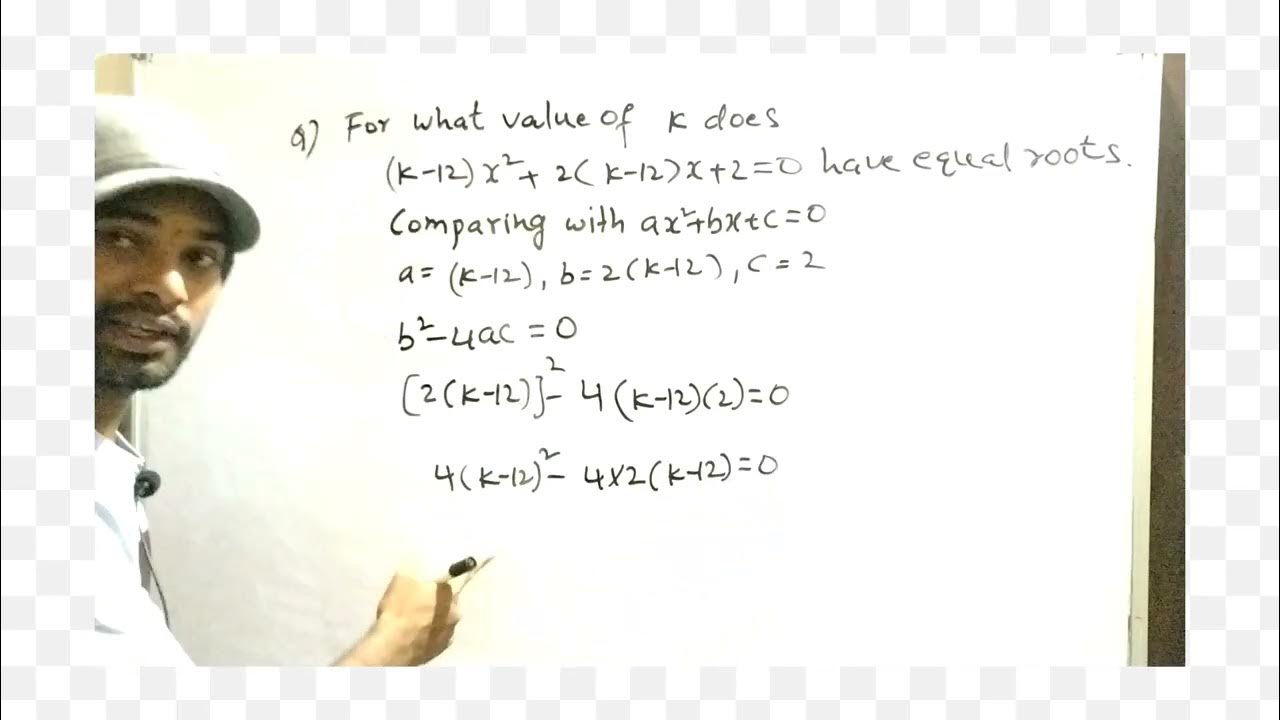 Q) For what value of k does
(k-12)x²+ 2(k-12)x+2=0 have equal roots.
Comparing with ax²+bx+c=0
a= (k-12), b=2(k-12), c=2
b²-4ac=0
[2(k-12)]²- 4(k-12)(2)=0
4(k-12)²- 4×2(k-12)=0